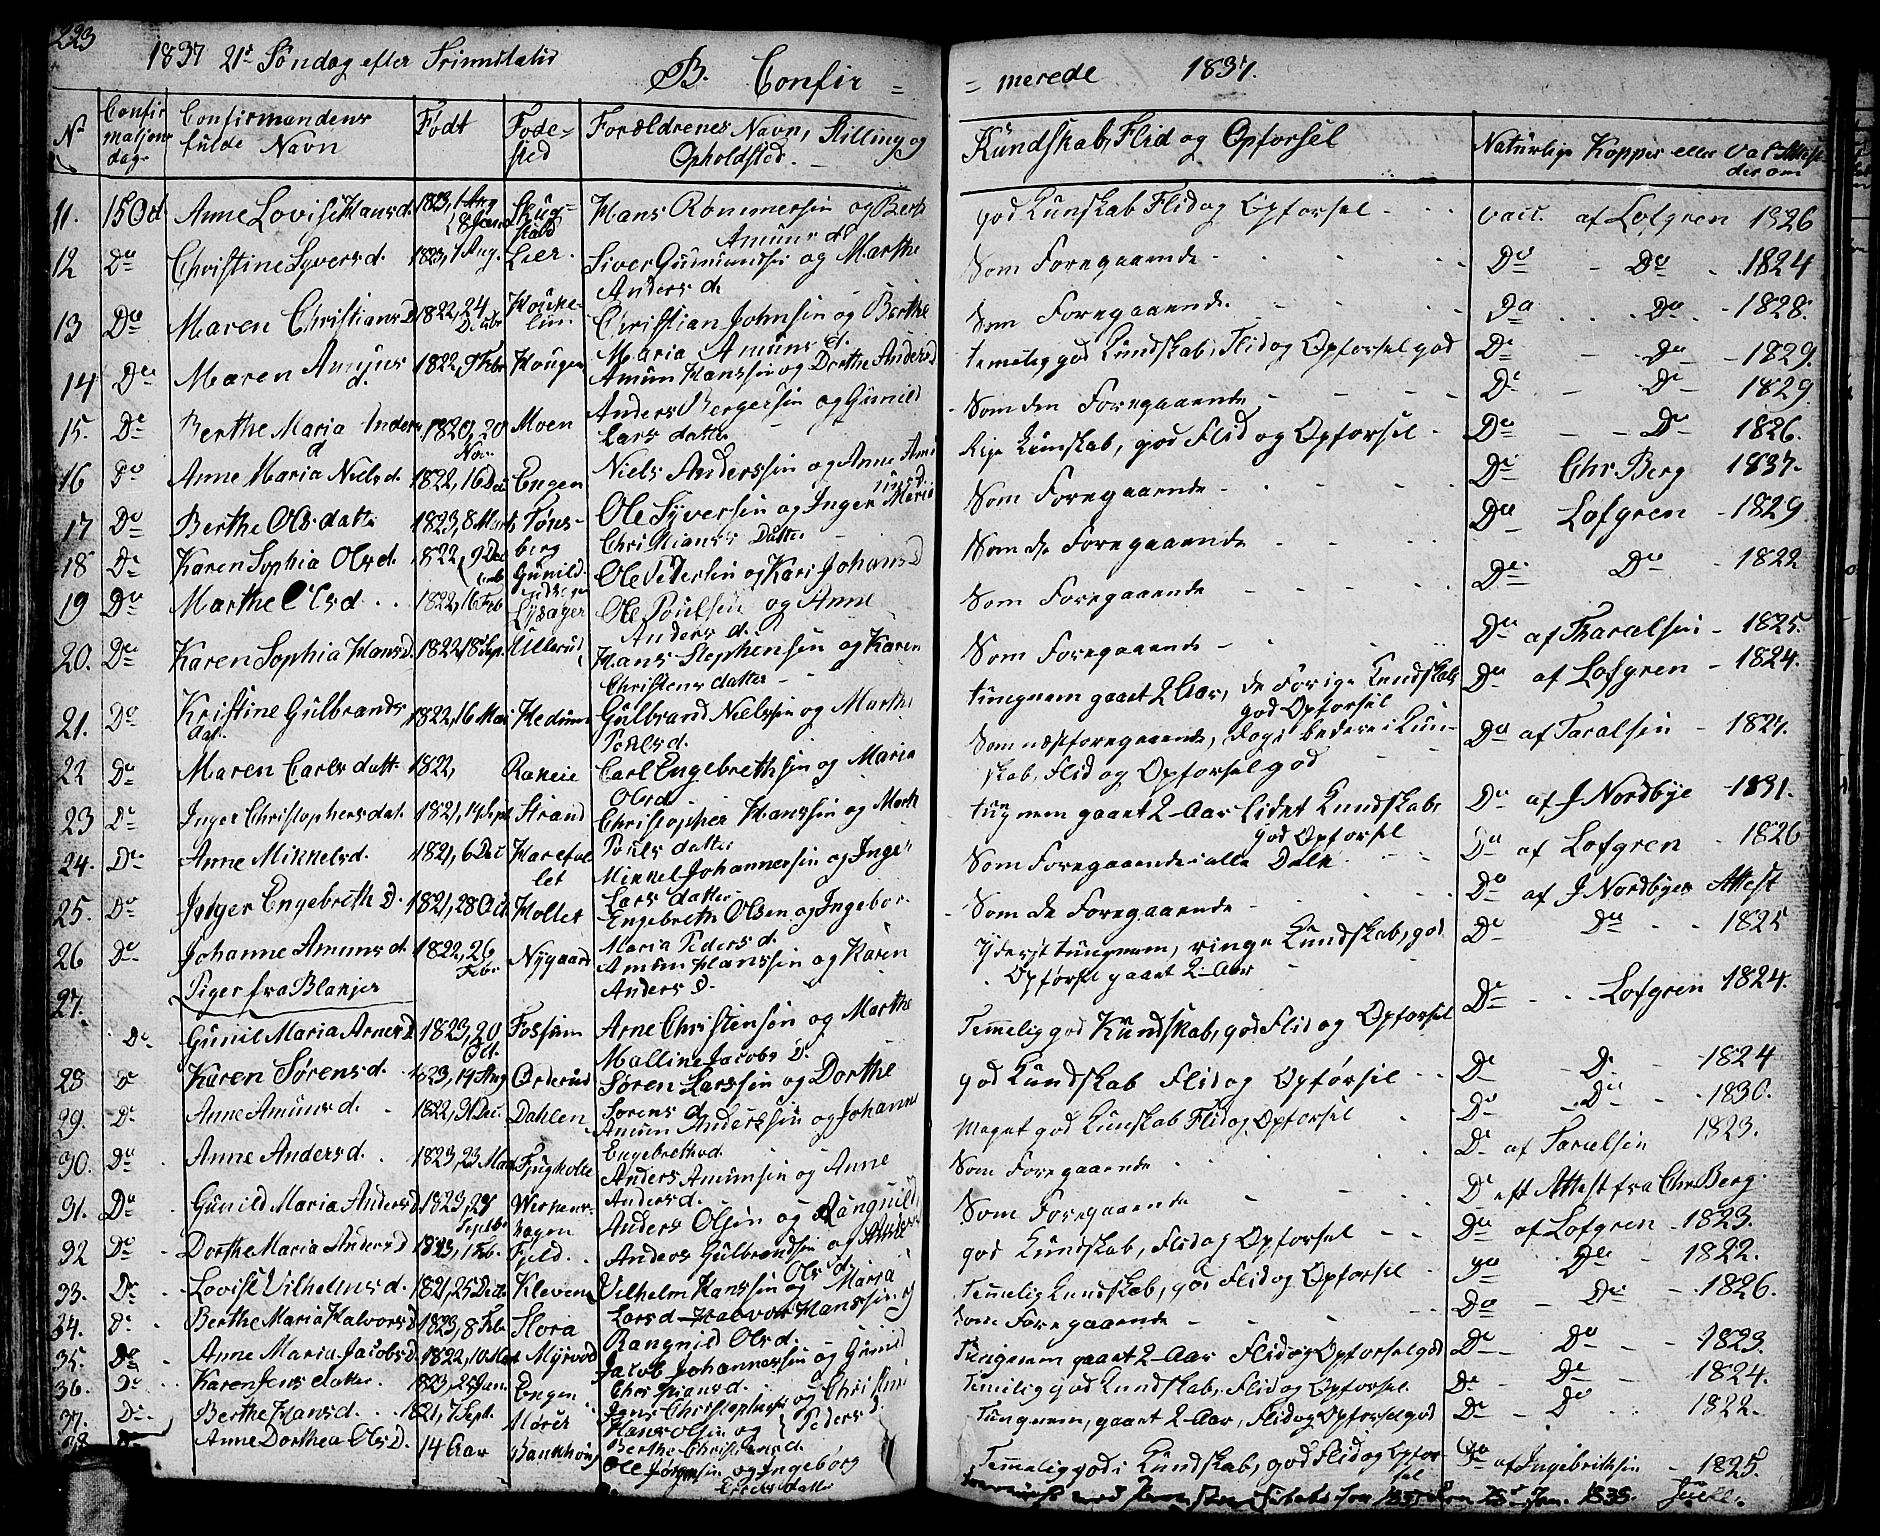 223
1837 21de Söndag efter Trinnitatis
B. Confir =
= merede 1837.
No Confirmatjons dag. Confirmandens fulde Navn Födt Fode-sted Forældrenes Navn, Stilling og Opholdsted.
Kundskab, Flid og Opforsel Naturlige Kopper eller Vac. Attest der om
11. 15 Oct Anne Lovise Hansd. 1823, 1 Aug Skugstad Hans Rømmersen og Berte Amunsd. god Kunskab Flid og Opforsel vacc. af Lofgren 1826
12 Do Christine Syversd. 1823, 1 Aug. Lier. Siver Gumundsen og Marthe Andersd. Som Foregaaende Do Do 1824
13 Do Maren Christians D 1822, 24 Decbr Christian Johnsen og Berthe Maria Amunsd. Som Foregaaende Do Do 1828.
14 Do Maren Amuns d. 1822, 9 Febr Haugen Amun Hanssen og Dorthe Andersd temelig god Kundskab, Flid og Opforsel god Do Do 1829.
15. Do Berthe Maria Anders d 1820, 20 Nov. Moen Anders Bergersen og Gunild Lars datter Som den Foregaaende Do Do 1829.
16 Do Anne Maria Nielsd. 1822, 16 Dec Engen Niels Anderssen og Anne Amunsd. Kunskab, god Flid og Opforsel Do Do 1826.
17 Do Berthe Olsdatter 1823, 8 Marts Tønsberg Ole Syversen og Inger Maria Christians Datter Som Foregaaende Do Chr. Berg 1837.
18 Do Karen Sophia Olsd. 1822, 9 Dec Gunild Ole Pedersen og Kari Johansd Som de Foregaaende Do Lofgren 1829
19 Do Marthe Olsd. 1822, 16 Feb Lysager Ole Poulsen og Anne Andersd. Som Foregaaende Do Do 1822
20. Do Karen Sophia Hansd. 1822, 18 Sep. Ullerud Hans Stephensen og Karen Christens datter Som Foregaaende Do af Tharalsen 1825.
21. Do Kristine Gulbrands dat. 1822, 16 Mai Hedum Gulbrand Nielssen og Marthe Poulsd. tungnem gaaet 2 Aar, de Forige Kundskab god Opforsel Do af Lofgren 1824.
22 Do Maren Carls datt. 1822, Carl Engebrethsen og Maria Olsd. Som næstforegaaende, dog bedere i Kunskab, Flid og Opforsel god Do af Taralsen 1827.
23 Do Inger Christophersdat. 1821, 14 Sept Strand Christopher Hanssen og Marthe Pouls datter tungnem gaaet 2 Aar Lidet Kundskab, god Opforsel Do af J Nordbye 1831.
24. Do Anne Mikkelsd. 1821, 6 Dec Harefallet Mikkel Johannessen og Inger Lars datter Som Foregaaende i alle Dele Do af Lofgren 1826
25. Do Inger Engebreth D. 1821, 28 Oct Holtet Engebreth Olsen og Ingebor Maria Pedersd. Som de Foregaaende Do af J Nordbyes Attest
26 Do Johanne Amunsd. 1822, 26 Febr Nygaard Amun Hanssen og Karen Anders D. Yderst tungnem, ringe Kundskab, god Opførsel gaaet 2 Aar Do Do 1825
Piger fra Blakjer
27. Do Gunil Maria Arnes D 1823, 20 Oct. Fossum Arne Christensen og Marthe Malline Jacobs D. Temmelig god Kundskab, god Flid og Opforsel Do Lofgren 1824.
28 Do Karen Sørensd. 1823, 14 Aug Ørderud Søren Larssen og Dorthe Sorensd. god Kundskab Flid og Opførsel Do Do 1824
29. Do Anne Amunsd. 1822, 31 Dec. Dahlen Amun Anderssen og Johanne Engebrethsd. Meget god Kunskab Flid og Opforsel Do Do 1830.
30. Do Anne Andersd. 1823, 23 Mai Anders Amunsen og Anne Andersd. Som Foregaaende Do af Taralsen 1823.
31. Do Gunild Maria Andersd 1823, 27 Septbr Anders Olsen og Rangnild Som Foregaaende Do eft Attest fra Chr Berg.
32 Do Dorthe Maria Anders D 1823, 1 Feb. Fjeld Anders Gulbrandsen og Olsd. god Kundskab, Flid og Opforsel Do af Lofgren 1823.
33. Do Lovise Vilhelmsd. 1821, 25 Dec Kleven Vilhelm Hanssen og Maria Larsd Temmelig Kundskab, god Flid og Opforsel Do Do 1822.
34. Do Berthe Maria Halvorsd 1823, 8 Feb Flora Halvor Hanssen og Rangnild Olsd. Som Foregaaende Do Do 1826.
35. Do Anne Maria Jacobsd. 1822, 10 Myrvold Jacob Johannessen og Gunild Christiansd. Tungnem gaaet 2 Aar Flid og Opforsel god Do Do 1823.
36. Do Karen Jens datter 1823, 25 Jan. Engen Jens Christophersen og Christine Peders d. Temelig god Kundskab, Flid og Opforsel. Do Do 1824.
37. Do Berthe Hansd. 1821, 7 Sept. Hans Olsen og Berthe Christensd. Tungnem, gaaet 2 Aar, Flid og Opforsel god Do Do 1822.
38 Do Anne Dorthea Ols D. 14 Aar Ole Jørgensen og Ingeborg datter Temmelig god Kundskab, god Flid og Opforsel Do af Ingebriktsen 1825.
1838.